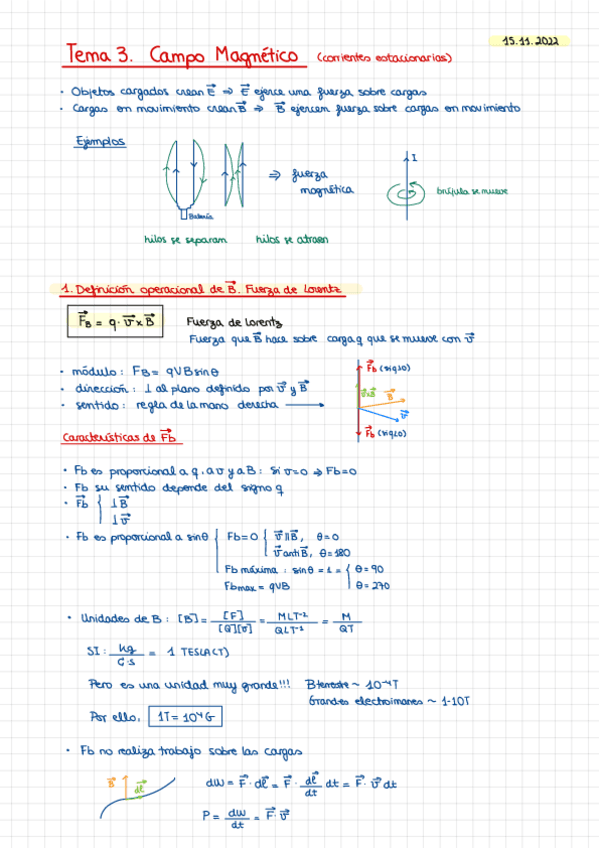 15.11.2022
Tema 3. Campo Magnético (corrientes estacionarias)
· Objetos cargados crean E⃗ ⇒ E⃗ ejerce una fuerza sobre cargas
· Cargas en movimiento crean B⃗ ⇒ B⃗ ejercen fuerza sobre cargas en movimiento
Ejemplos
⇒ fuerza magnética
I
brújula se mueve
Batería
hilos se separan hilos se atraen
1. Definición operacional de B⃗. Fuerza de Lorentz
F⃗B = q · v⃗ x B⃗ Fuerza de Lorentz
Fuerza que B⃗ hace sobre carga q que se mueve con v⃗
· módulo: FB = qVB sinθ
· dirección: ⊥ al plano definido por v⃗ y B⃗
· sentido: regla de la mano derecha →
F⃗b (si q>0)
v⃗xB⃗
B⃗
v⃗
F⃗b (si q<0)
Características de F⃗b
· Fb es proporcional a q, a v y a B: si v=0 ⇒ Fb=0
· Fb su sentido depende del signo q
· F⃗b { ⊥B⃗
⊥v⃗
· Fb es proporcional a sinθ { Fb=0 { v⃗ || B⃗, θ=0
v⃗ anti B⃗, θ=180
Fb máxima: sinθ = 1 = { θ=90
Fbmax = qVB θ=270
· Unidades de B: [B] = [F] / [Q][v] = MLT⁻² / QLT⁻¹ = M / QT
SI: kg / C·s = 1 TESLA(T)
Pero es una unidad muy grande!!! Bterrestre ~ 10⁻⁴T
Grandes electroimanes ~ 1-10T
Por ello, 1T = 10⁴G
· Fb no realiza trabajo sobre las cargas
B⃗ dl⃗
dW = F⃗ · dl⃗ = F⃗ · dl⃗/dt dt = F⃗ · v⃗ dt
P = dW/dt = F⃗ · v⃗